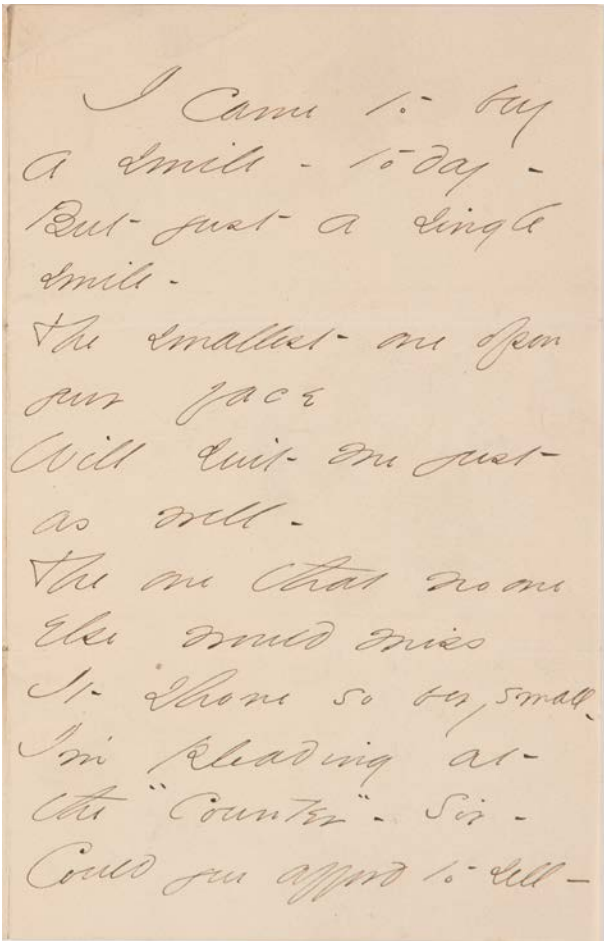 I came to buy
a smile - today -
But just a single
smile -
The smallest one upon
your face
Will suit me just
as well -
The one that no one
Else would miss
It shone so very small -
I'm pleading at
the "Counter" - Sir -
Could you afford to sell -